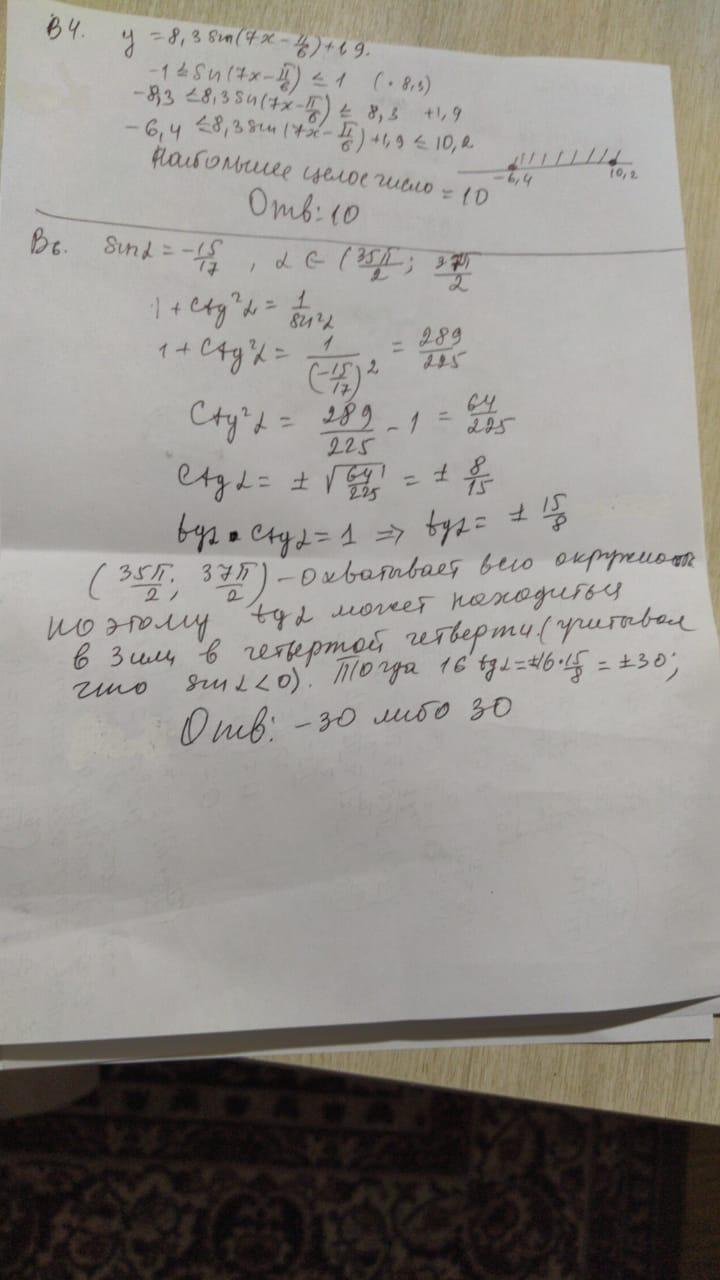 В4. y = 8,3 sin(7x - π/6) + 1,9.
-1 ≤ sin(7x - π/6) ≤ 1 (· 8,3)
-8,3 ≤ 8,3 sin(7x - π/6) ≤ 8,3 +1,9
-6,4 ≤ 8,3 sin(7x - π/6) + 1,9 ≤ 10,2
-6,4 10,2
Наибольшее целое число = 10
Отв: 10
В6. sin α = -15/17, α ∈ (35π/2; 37π/2
1 + ctg²α = 1/sin²α
1 + ctg²α = 1/(-15/17)² = 289/225
Ctg²α = 289/225 - 1 = 64/225
Ctg α = ± √64/225 = ± 8/15
tg α · ctg α = 1 ⇒ tg α = ± 15/8
(35π/2; 37π/2) - охватывает всю окружность
поэтому tg α может находиться
в 3 или в четвертой четверти (учитывая
что sin α < 0). Тогда 16 tg α = ±16·15/8 = ±30;
Отв: -30 либо 30